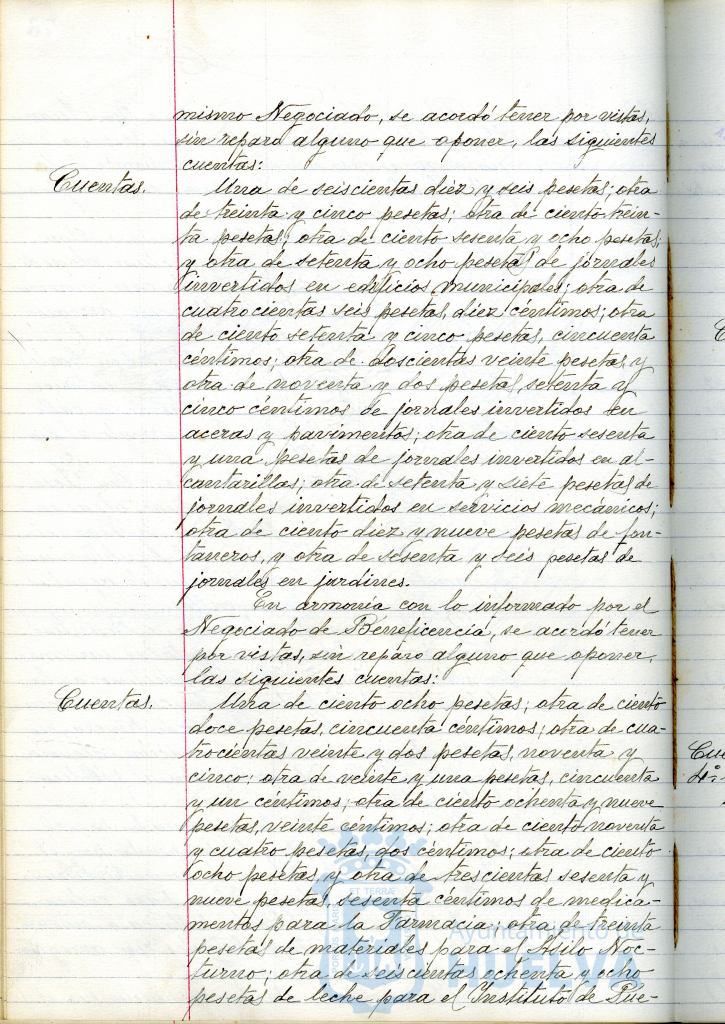 mismo Negociado, se acordó tener por vistas,
sin reparo alguno que oponer, las siguientes
cuentas:
Cuentas.
Una de seiscientas diez y seis pesetas; otra
de treinta y cinco pesetas; otra de ciento trein-
ta pesetas; otra de ciento sesenta y ocho pesetas,
y otra de setenta y ocho pesetas de jornales
invertidos en edificios municipales; otra de
cuatrocientas seis pesetas, diez céntimos; otra
de ciento setenta y cinco pesetas, cincuenta
céntimos; otra de doscientas veinte pesetas y
otra de noventa y dos pesetas, setenta y
cinco céntimos de jornales invertidos en
aceras y pavimentos; otra de ciento sesenta
y una pesetas de jornales invertidos en al-
cantarillas; otra de setenta y siete pesetas de
jornales invertidos en servicios mecánicos;
otra de ciento diez y nueve pesetas de fon-
taneros, y otra de sesenta y seis pesetas de
jornales en jardines.
En armonía con lo informado por el
Negociado de Beneficencia, se acordó tener
por vistas, sin reparo alguno que oponer,
las siguientes cuentas:
Cuentas.
Una de ciento ocho pesetas; otra de ciento
doce pesetas, cincuenta céntimos; otra de cua-
trocientas veinte y dos pesetas, noventa y
cinco; otra de veinte y una pesetas, cincuenta
y un céntimos; otra de ciento ochenta y nueve
pesetas, veinte céntimos; otra de ciento noventa
y cuatro pesetas, dos céntimos; otra de ciento
ocho pesetas, y otra de trescientas sesenta y
nueve pesetas, sesenta céntimos de medica-
mentos para la Farmacia; otra de treinta
pesetas de materiales para el Asilo Noc-
turno; otra de seiscientas ochenta y ocho
pesetas de leche para el Instituto de Pue-
Ayuntamiento de
HUELVA